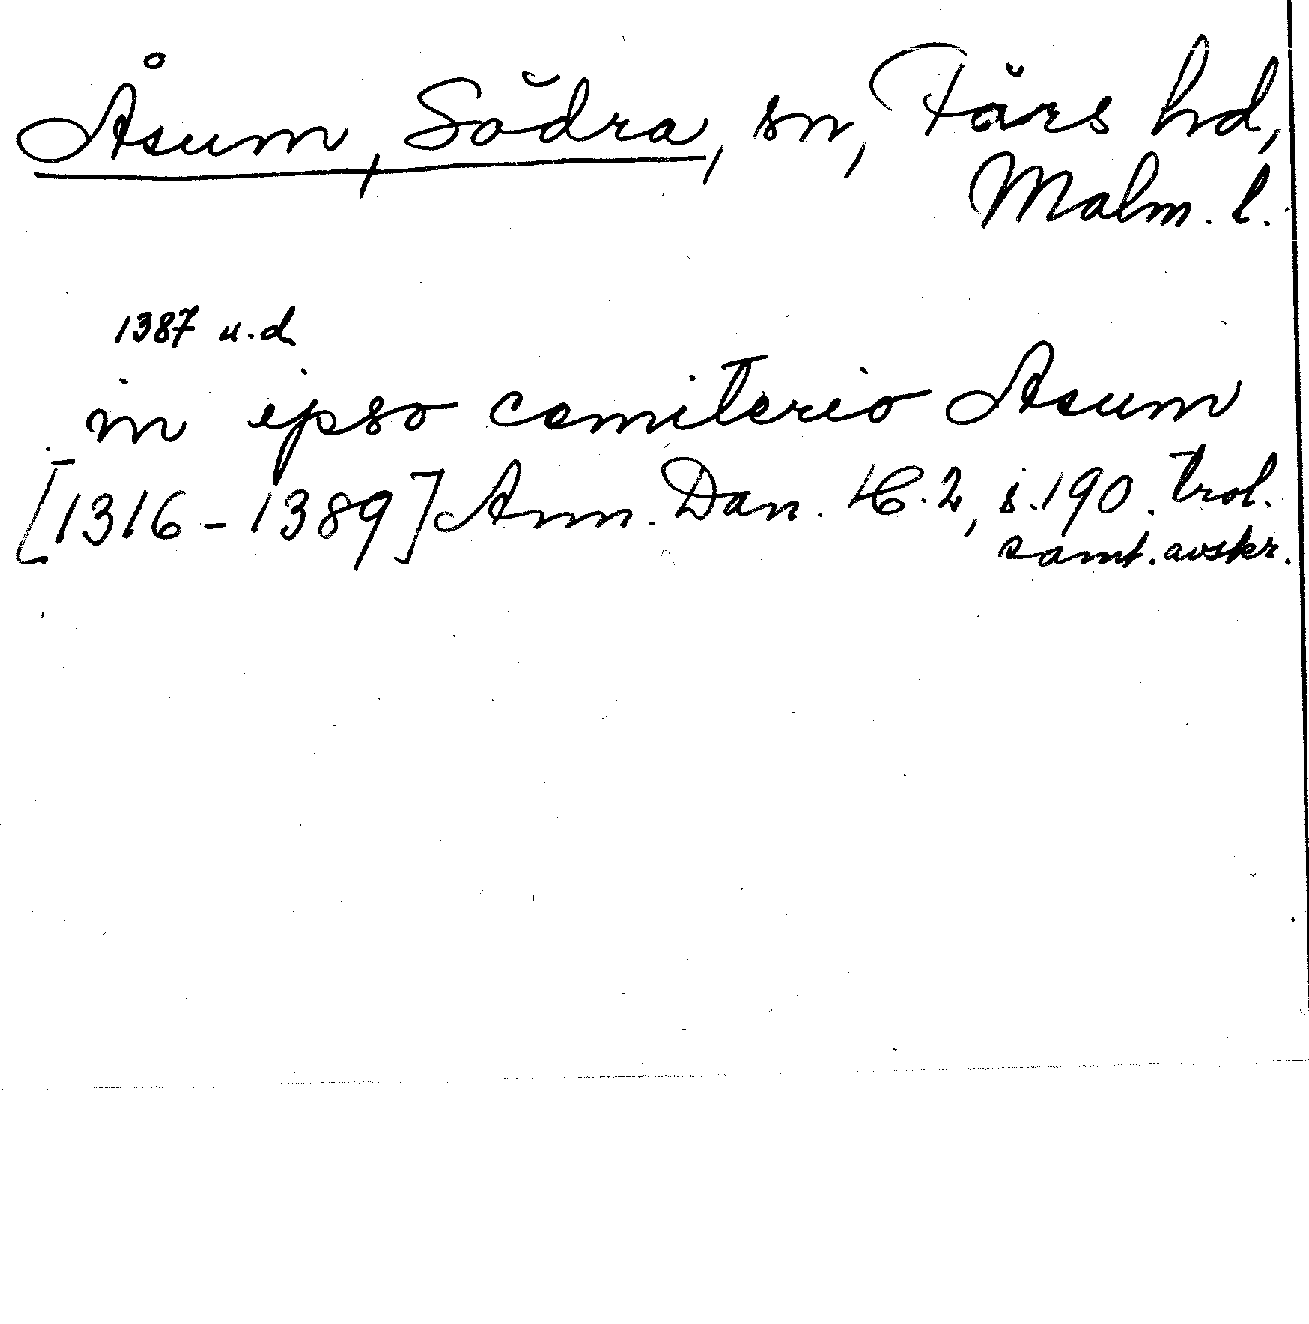 Åsum, Södra, sn, Färs hd,
Malm. l.
1387 u.d.
in ipso cemiterio Asum
[1316-1389] Ann. Dan. H. 2, s. 190. trol.
samt. avskr.